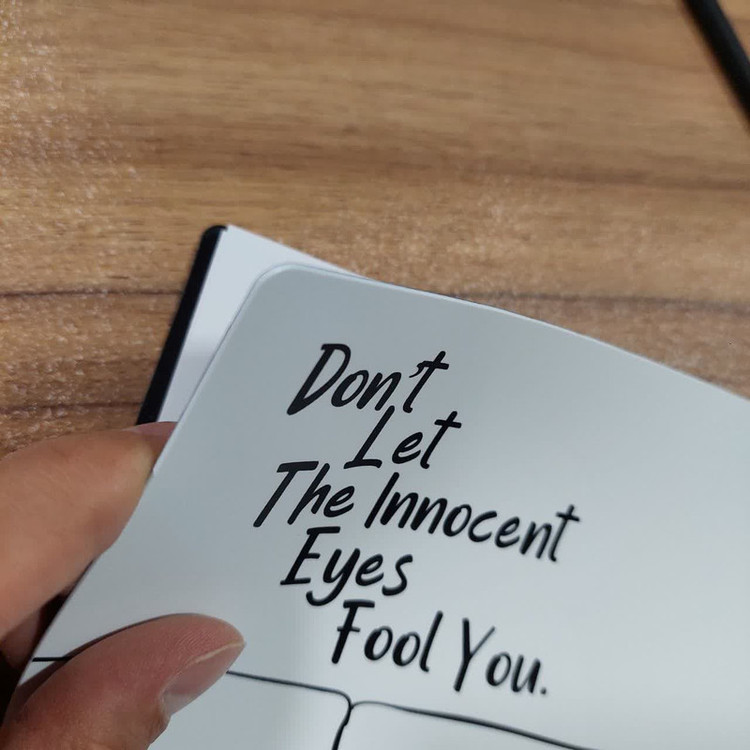 Don't
Let
The Innocent
Eyes
Fool You.